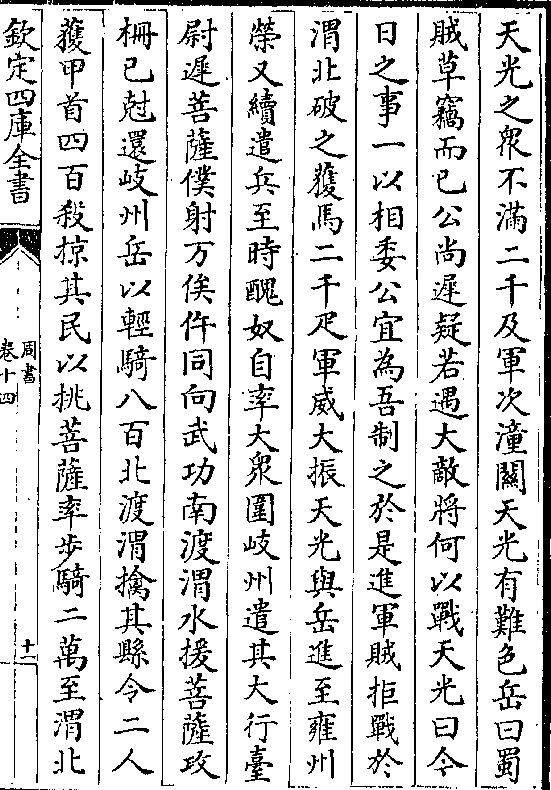 天光之衆不滿二千及軍次潼關天光有難色岳曰蜀
賊草竊而已公尚遲疑若遇大敵將何以戰天光曰今
日之事一以相委公宜為吾制之於是進軍賊拒戰於
渭北破之獲馬二千疋軍威大振天光與岳進至雍州
榮又續遣兵至時醜奴自率大衆圍岐州遣其大行臺
尉遲菩薩僕射万俟仵同向武功南渡渭水援菩薩攻
柵已尅還岐州岳以輕騎八百北渡渭擒其縣令二人
獲甲首四百殺掠其民以挑菩薩率步騎二萬至渭北
欽定四庫全書
周書
卷十四
十一